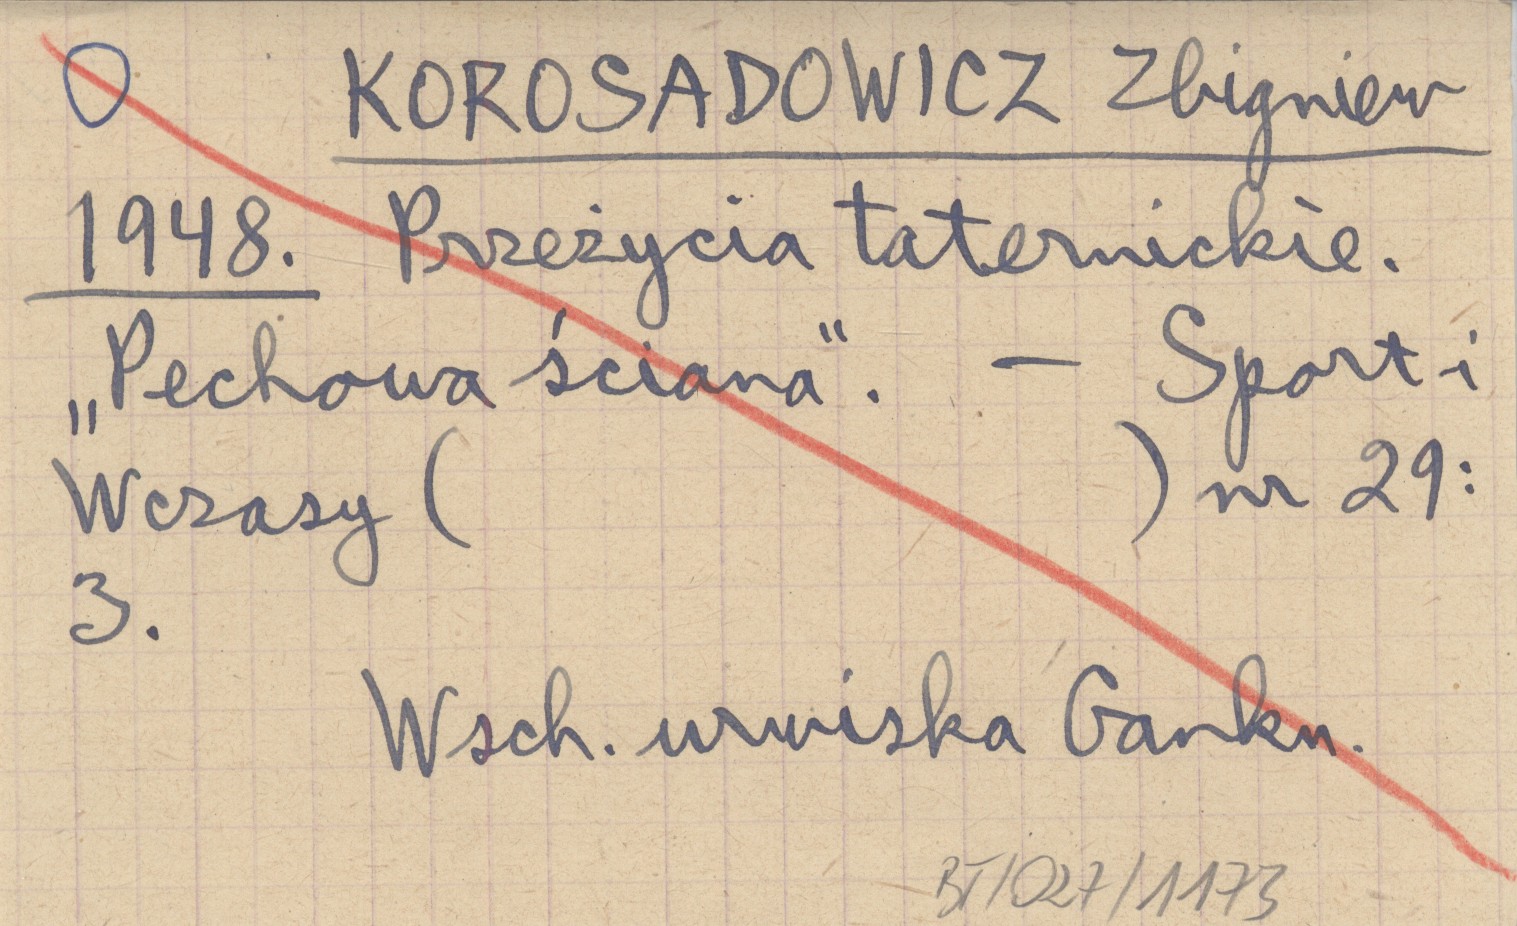 KOROSADOWICZ Zbigniew
1948. Przeżycia taternickie.
„Pechowa ściana“. — Sport i
Wczasy ( ) nr 29:
3.
Wsch. urwiska Ganku.
BT/027/1173